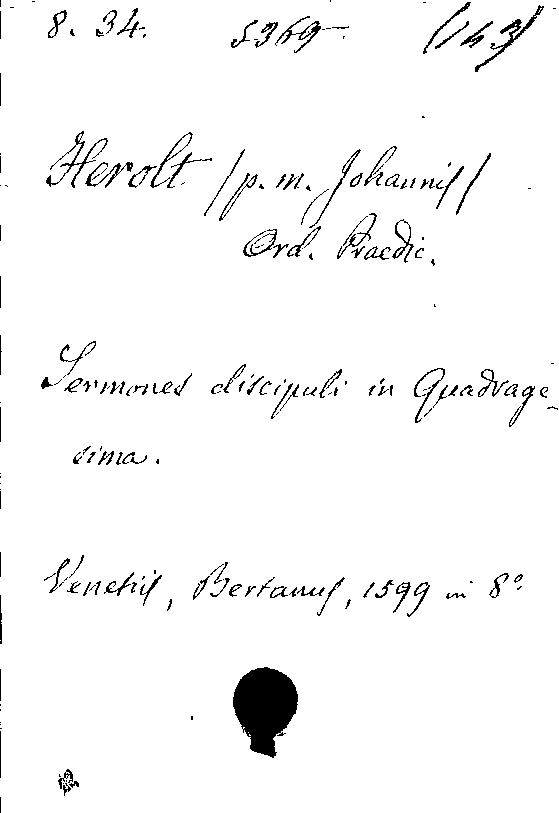 8. 34. 5369. (143)
Herolt /p. m. Johannis/
Ord. Praedic.
Sermones discipuli in Quadrage-
sima.
Venetiis, Bertanus, 1599 in 8°.